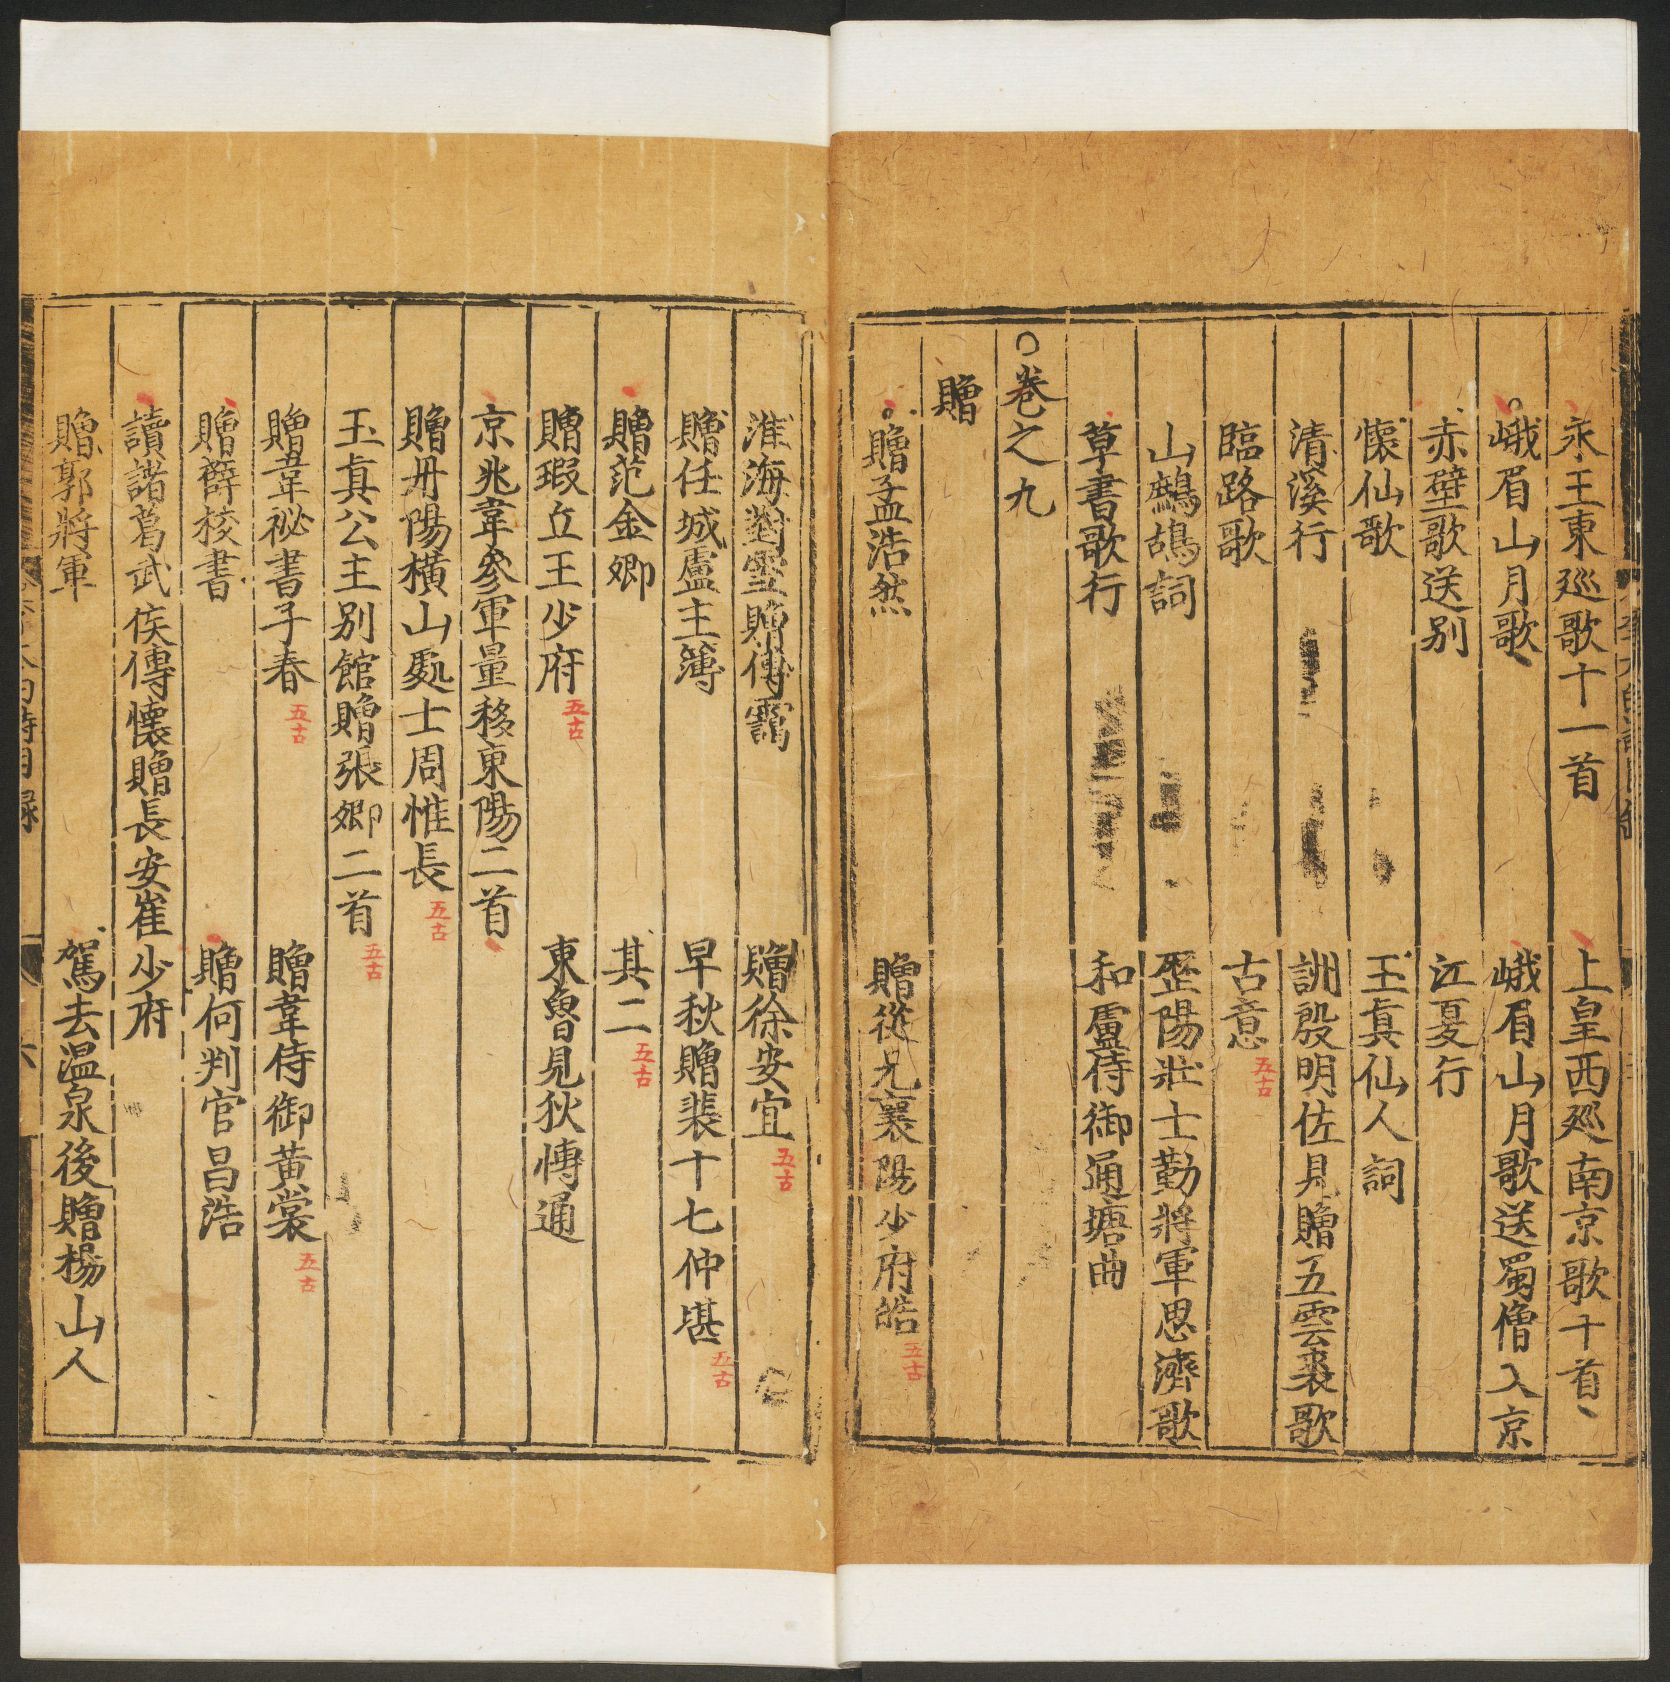 永王東巡歌十一首　上皇西廵南京歌十首
峨眉山月歌　峨眉山月歌送蜀僧入京
赤壁歌送别　江夏行
懷仙歌　玉真仙人詞
清溪行　詶殷明佐見贈五雲裘歌
臨路歌　古意　五古
山鷓鴣詞　歷陽壯士勤將軍思濟歌
草書歌行　和盧侍御通塘曲
○卷之九
贈
贈孟浩然　贈從兄襄陽少府皓　五古
淮海對雪贈傅靄　贈徐安宜　五古
贈任城盧主簿　早秋贈裴十七仲堪　五古
贈范金卿　其二　五古
贈瑕丘王少府　五古　東魯見狄慱通
京兆韋參軍量移東陽二首
贈丹陽横山處士周惟長　五古
玉真公主别館贈張卿二首　五古
贈韋祕書子春　五古　贈韋侍御黄裳　五古
贈薛校書　贈何判官昌浩
讀諸葛武侯傳懷贈長安崔少府
贈郭將軍　駕去温泉後贈楊山人